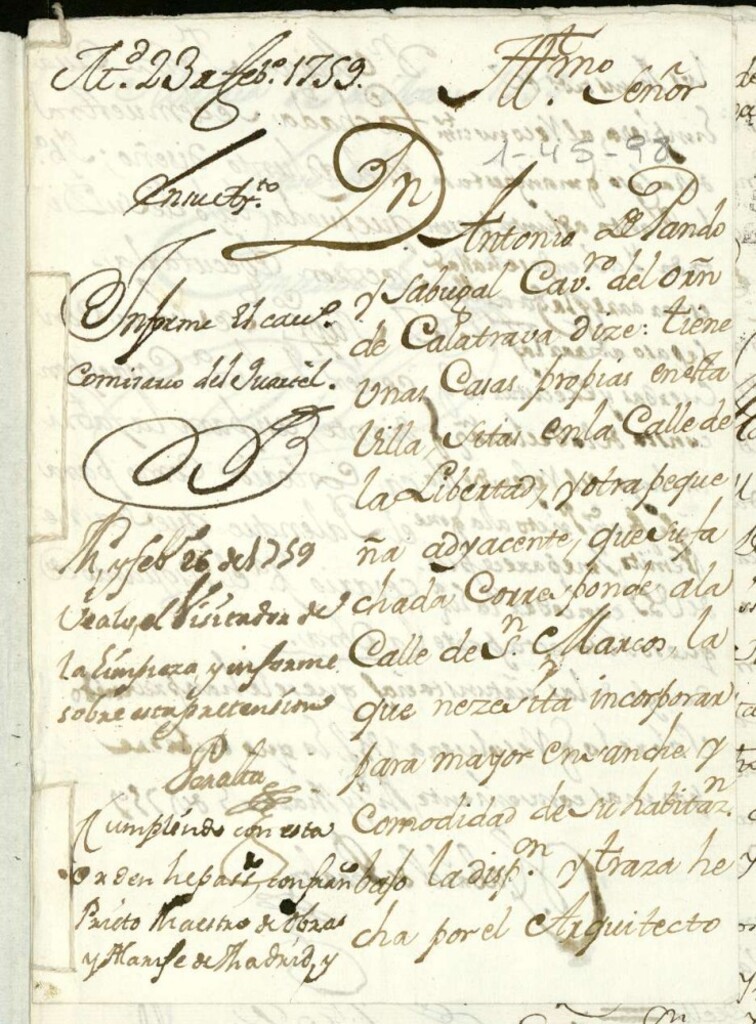 M.d 23 a feb.o 1759.
Yll.mo Señor
1-45-98
En su Ay.to
Dn Antonio de Pando
y Sabugal Cav.ro del orñ
de Calatrava dize: tiene
unas Casas propias en esta
Villa, sitas en la Calle de
la Libertad, y otra peque
ña adyacente, que su fa
chada Corresponde ala
Calle de S.n Marcos, la
que nezesita incorporar
para mayor ensanche y
comodidad de su habitaz.n
bajo la disp.on y traza he
cha por el Arquitecto
Informe El cav.o
Comisario del Quartel.
M. y feb.o 26 de 1759
Vealo, el Visitador de
la Limpieza y informe
sobre esta pretension
Peralta
Cumpliendo con esta
orden he pas.do con fran.co
Prieto Maestro de obras
y Alarife de Madrid, y